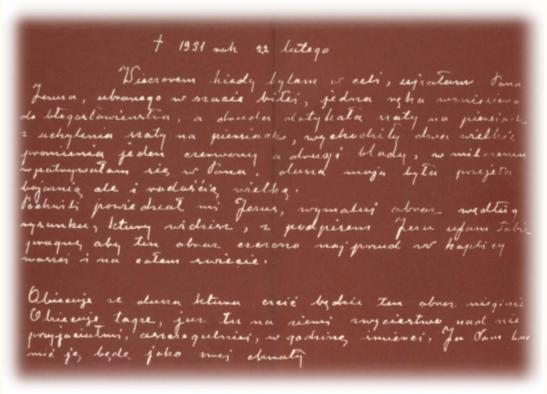 † 1931 rok 22 lutego
Wieczorem kiedy byłam w celi, ujrzałam Pana
Jezusa, ubranego w szacie białej, jedna ręka wzniesiona
do błogosławieństwa, a druga dotykała szaty na piersiach
z uchylenia szaty na piersiach, wychodziły dwa wielkie
promienia jeden czerwony a drugi blady, w milczeniu
wpatrywałam się w Pana, dusza moja była przejęta
bojaźnią ale i radością wielką.
Po chwili powiedział mi Jezus, wymaluj obraz według
rysunku, który widzisz, z podpisem Jezu ufam Tobie
pragnę, aby ten obraz czczono najprzód w kaplicy
waszej i na całem świecie.
Obiecuję że dusza która czcić będzie ten obraz nie zginie
Obiecuję także, już tu na ziemi zwycięstwo nad nie
przyjaciółmi, a szczególniej, w godzinę śmierci, Ja Sam bro
nić ją będę jako swej chwały